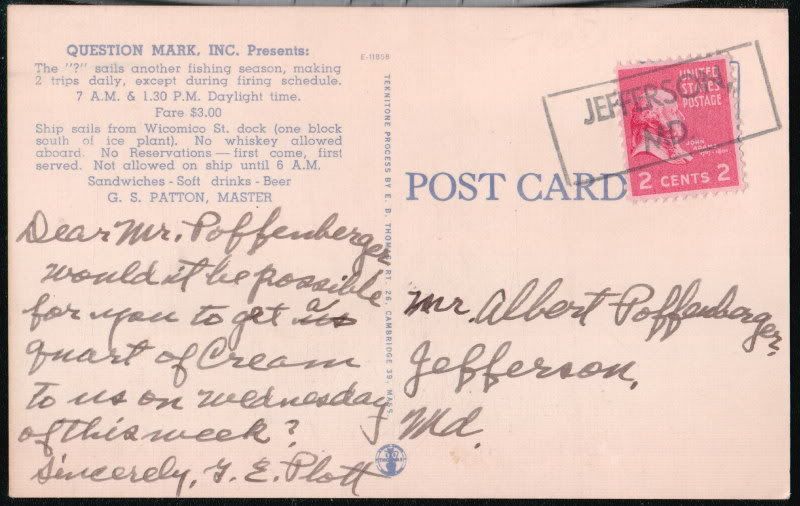 QUESTION MARK, INC. Presents:
The "?" sails another fishing season, making
2 trips daily, except during firing schedule.
7 A.M. & 1.30 P.M. Daylight time.
Fare $3.00
Ship sails from Wicomico St. dock (one block
south of ice plant). No whiskey allowed
aboard. No Reservations — first come, first
served. Not allowed on ship until 6 A.M.
Sandwiches - Soft drinks - Beer
G. S. PATTON, MASTER
Dear Mr. Poffenberger
would it be possible
for you to get a
quart of Cream
to us on wednesday
of this week?
Sincerely, G. E. Plott
E-11858
TEKNITONE PROCESS BY E. B. THOMAS, RT 26, CAMBRIDGE 39, MASS.
POST CARD
JEFFERSON,
MD.
UNITED
STATES
POSTAGE
JOHN ADAMS
2 CENTS 2
Mr. Albert Poffenberger,
Jefferson,
Md.